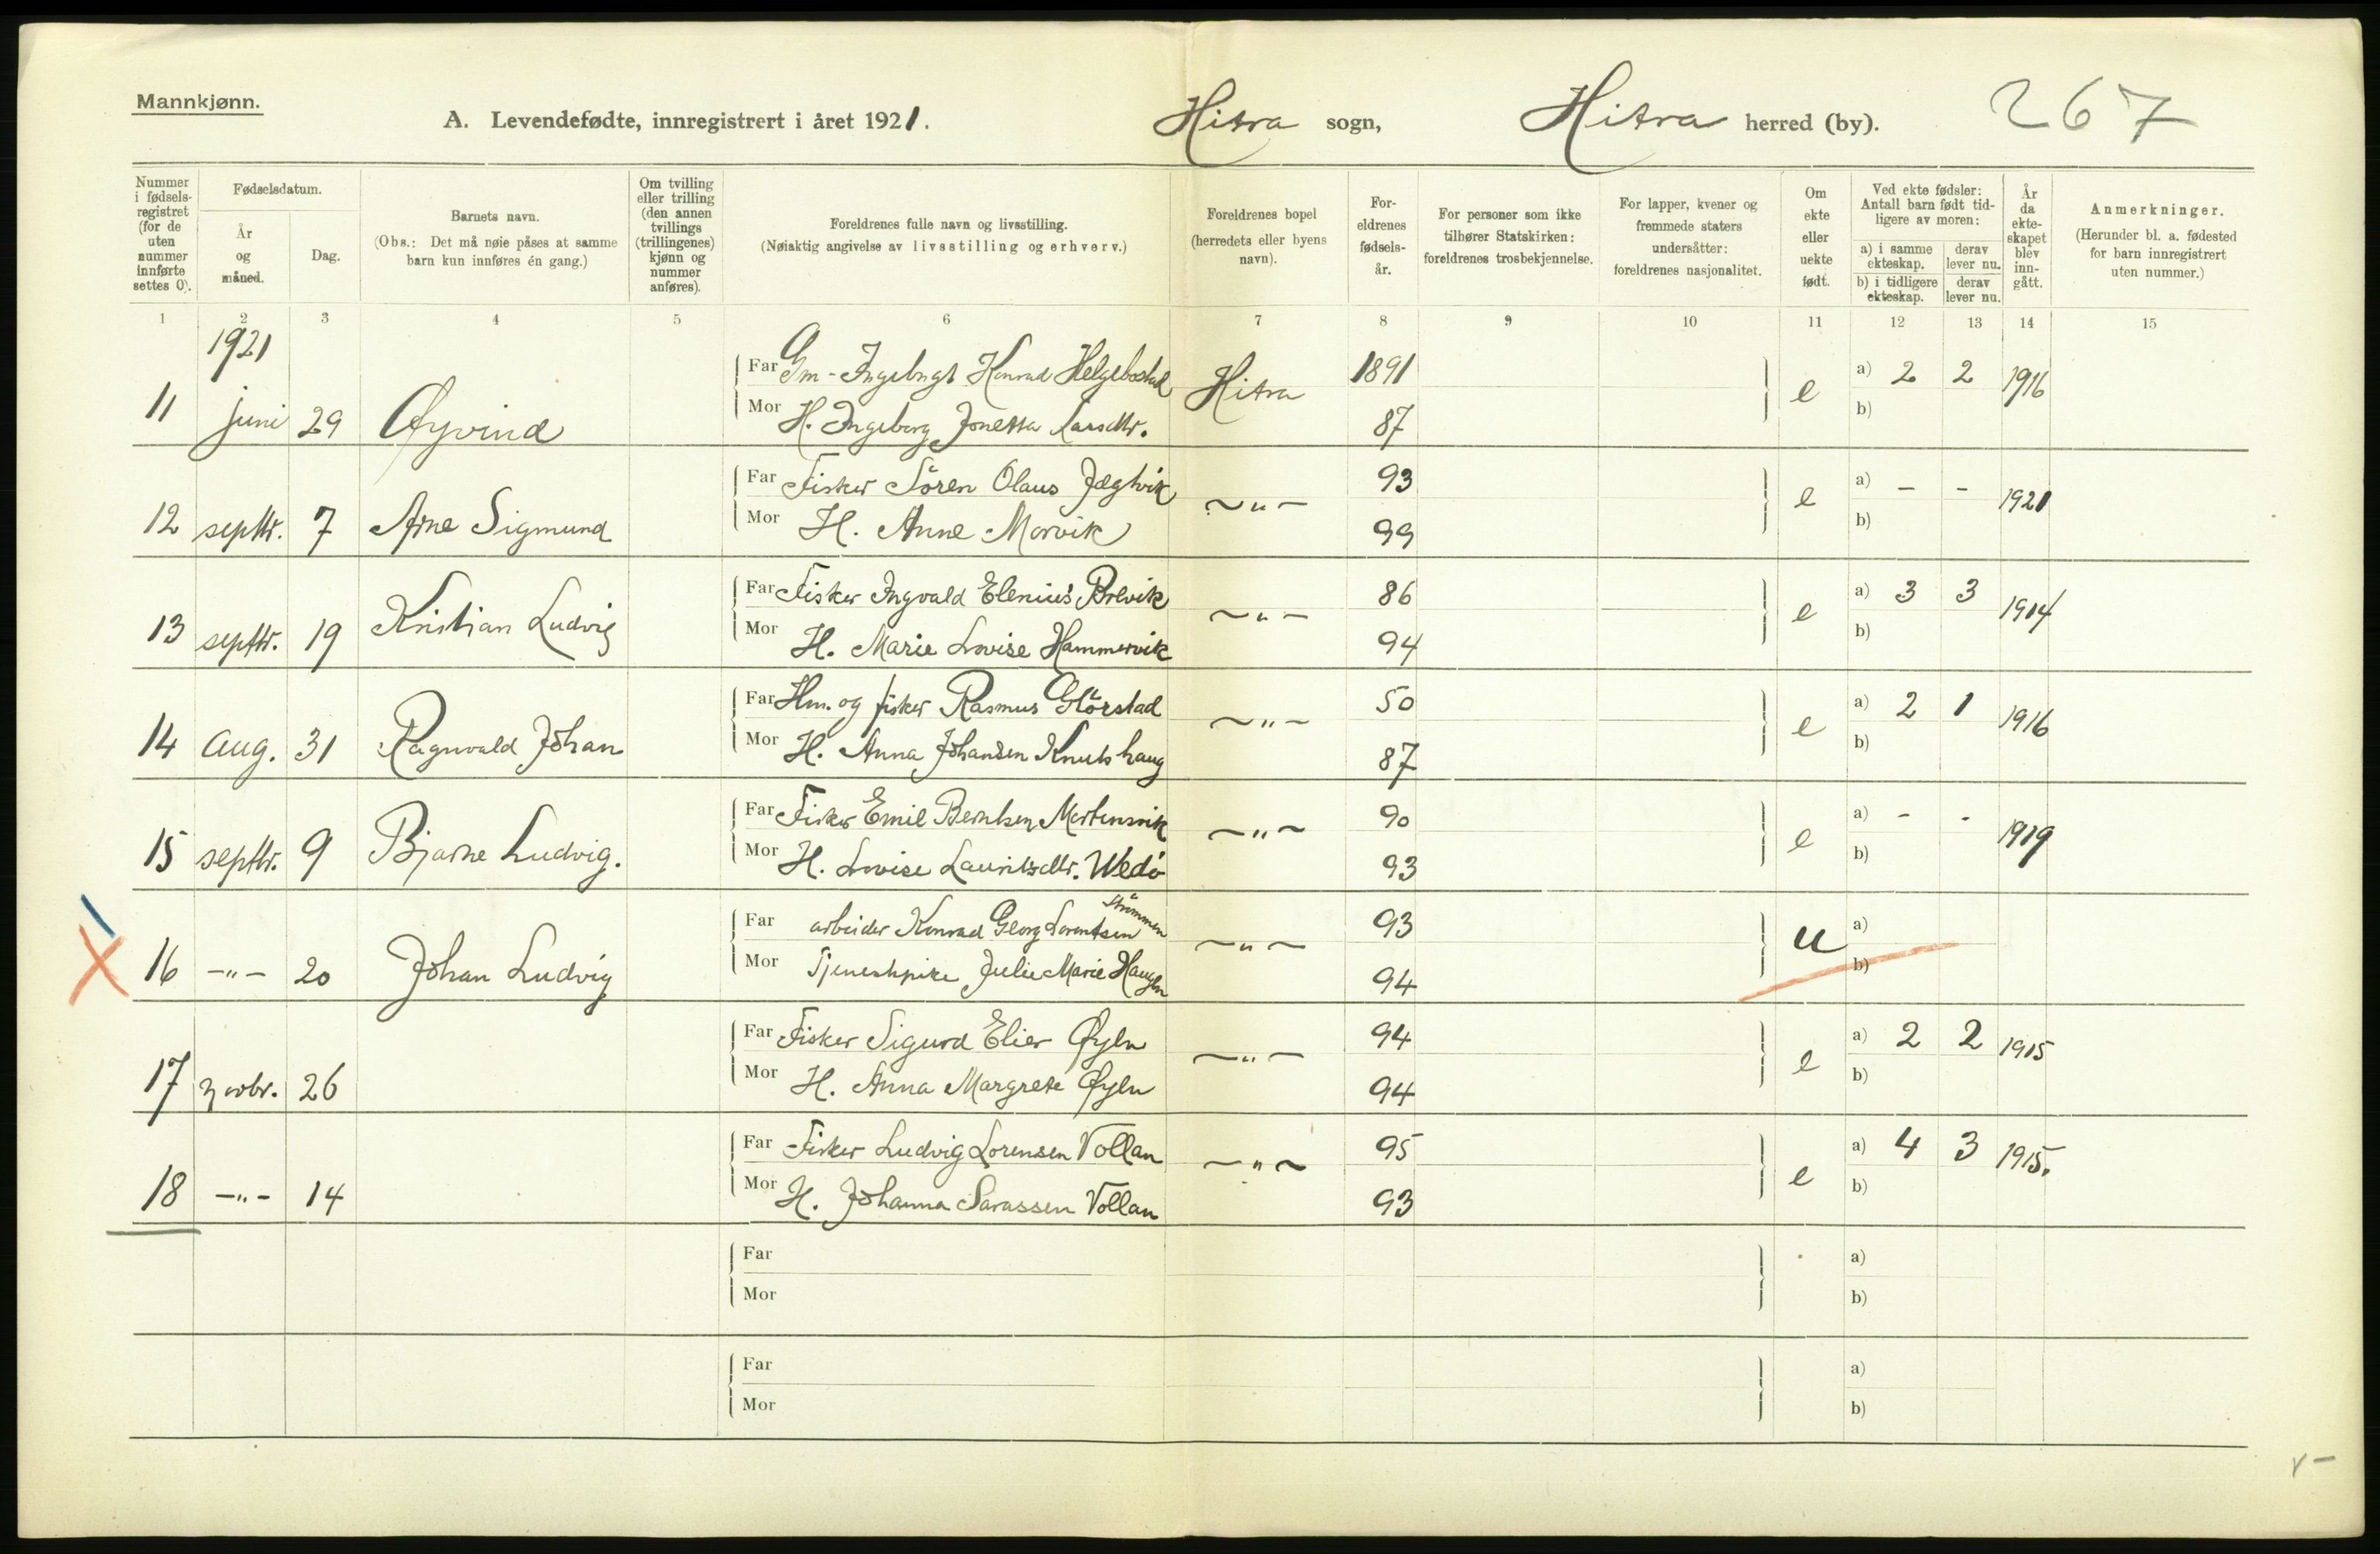 Mannkjønn.
A. Levendefødte, innregistrert i året 1921. Hitra sogn, Hitra herred (by). 267
Nummer i fødselsregistret (for de uten nummer innførte settes 0).
Fødselsdatum.
År og måned.
Dag.
Barnets navn.
(Obs.: Det må nøie påses at samme barn kun innføres én gang.)
Om tvilling eller trilling (den annen tvillings (trillingenes) kjønn og nummer anføres).
Foreldrenes fulle navn og livsstilling.
(Nøiaktig angivelse av livsstilling og erhverv.)
Foreldrenes bopel (herredets eller byens navn).
Foreldrenes fødselsår.
For personer som ikke tilhører Statskirken: foreldrenes trosbekjennelse.
For lapper, kvener og fremmede staters undersåtter: foreldrenes nasjonalitet.
Om ekte eller uekte født.
Ved ekte fødsler: Antall barn født tidligere av moren:
a) i samme ekteskap. derav lever nu.
b) i tidligere ekteskap. derav lever nu.
År da ekteskapet blev inngått.
Anmerkninger.
(Herunder bl. a. fødested for barn innregistrert uten nummer.)
1 2 3 4 5 6 7 8 9 10 11 12 13 14 15
1921
Far Gm - Ingebrigt Konrad Helgebostad Hitra 1891 a) 2 2 1916
11 juni 29 Øyvind e
Mor H. Ingeborg Jonetta Larsdtr. 87 b)
Far Fisker Sören Olaus Jægtvik -"- 93 a) - - 1921
12 septbr. 7 Arne Sigmund e
Mor H. Anne Morvik 99 b)
Far Fisker Ingvald Elenius Brevik -"- 86 a) 3 3 1914
13 septbr. 19 Kristian Ludvig e
Mor H. Marie Lovise Hammervik 94 b)
Far Hm. og fisker Rasmus Glörstad -"- 50 a) 2 1 1916
14 aug. 31 Ragnvald Johan e
Mor H. Anna Johansen Knutshaug 87 b)
Far Fisker Emil Berntsen Mortensvik -"- 90 a) - - 1919
15 septbr. 9 Bjarne Ludvig. e
Mor H. Lovise Lauritsdtr. Wedö 93 b)
Far arbeider Konrad Georg Lorentsen Strömmen -"- 93 a)
16 -"- 20 Johan Ludvig u
Mor Tjenestepike Julie Marie Haugen 94 b)
Far Fisker Sigurd Elier Øylu -"- 94 a) 2 2 1915
17 novbr. 26 e
Mor H. Anna Margrete Øylu 94 b)
Far Fisker Ludvig Lorensen Vollan -"- 95 a) 4 3 1915.
18 -"- 14 e
Mor H. Johanna Sarassen Vollan 93 b)
Far a)
Mor b)
Far a)
Mor b)